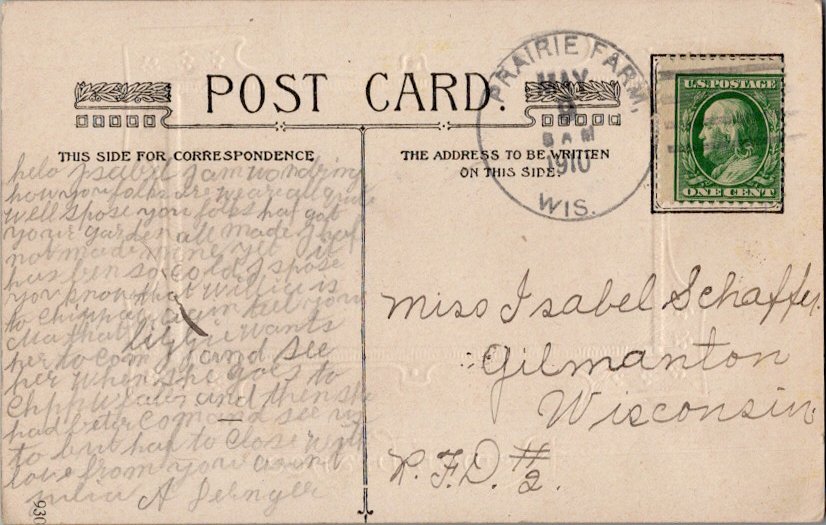 POST CARD.
THIS SIDE FOR CORRESPONDENCE
THE ADDRESS TO BE WRITTEN
ON THIS SIDE.
PRAIRIE FARM,
MAY
8 AM
1910
WIS.
U.S. POSTAGE
ONE CENT
helo Isabel I am wondring
how you folks are we are all quite
well spose you folks haf got
your garden all made I haf
not made mine yet it
has ben so cold I spose
you know that Willie is
to Chippway again tell your
Ma that Lizzie wants
her to com and see
her when she goes to
Chppway and then she
had beter com and see us
to but haf to close with
love from your aunt
Julia A
Miss Isabel Schaffer
Gilmanton
Wisconsin
R. F. D. #2.
930